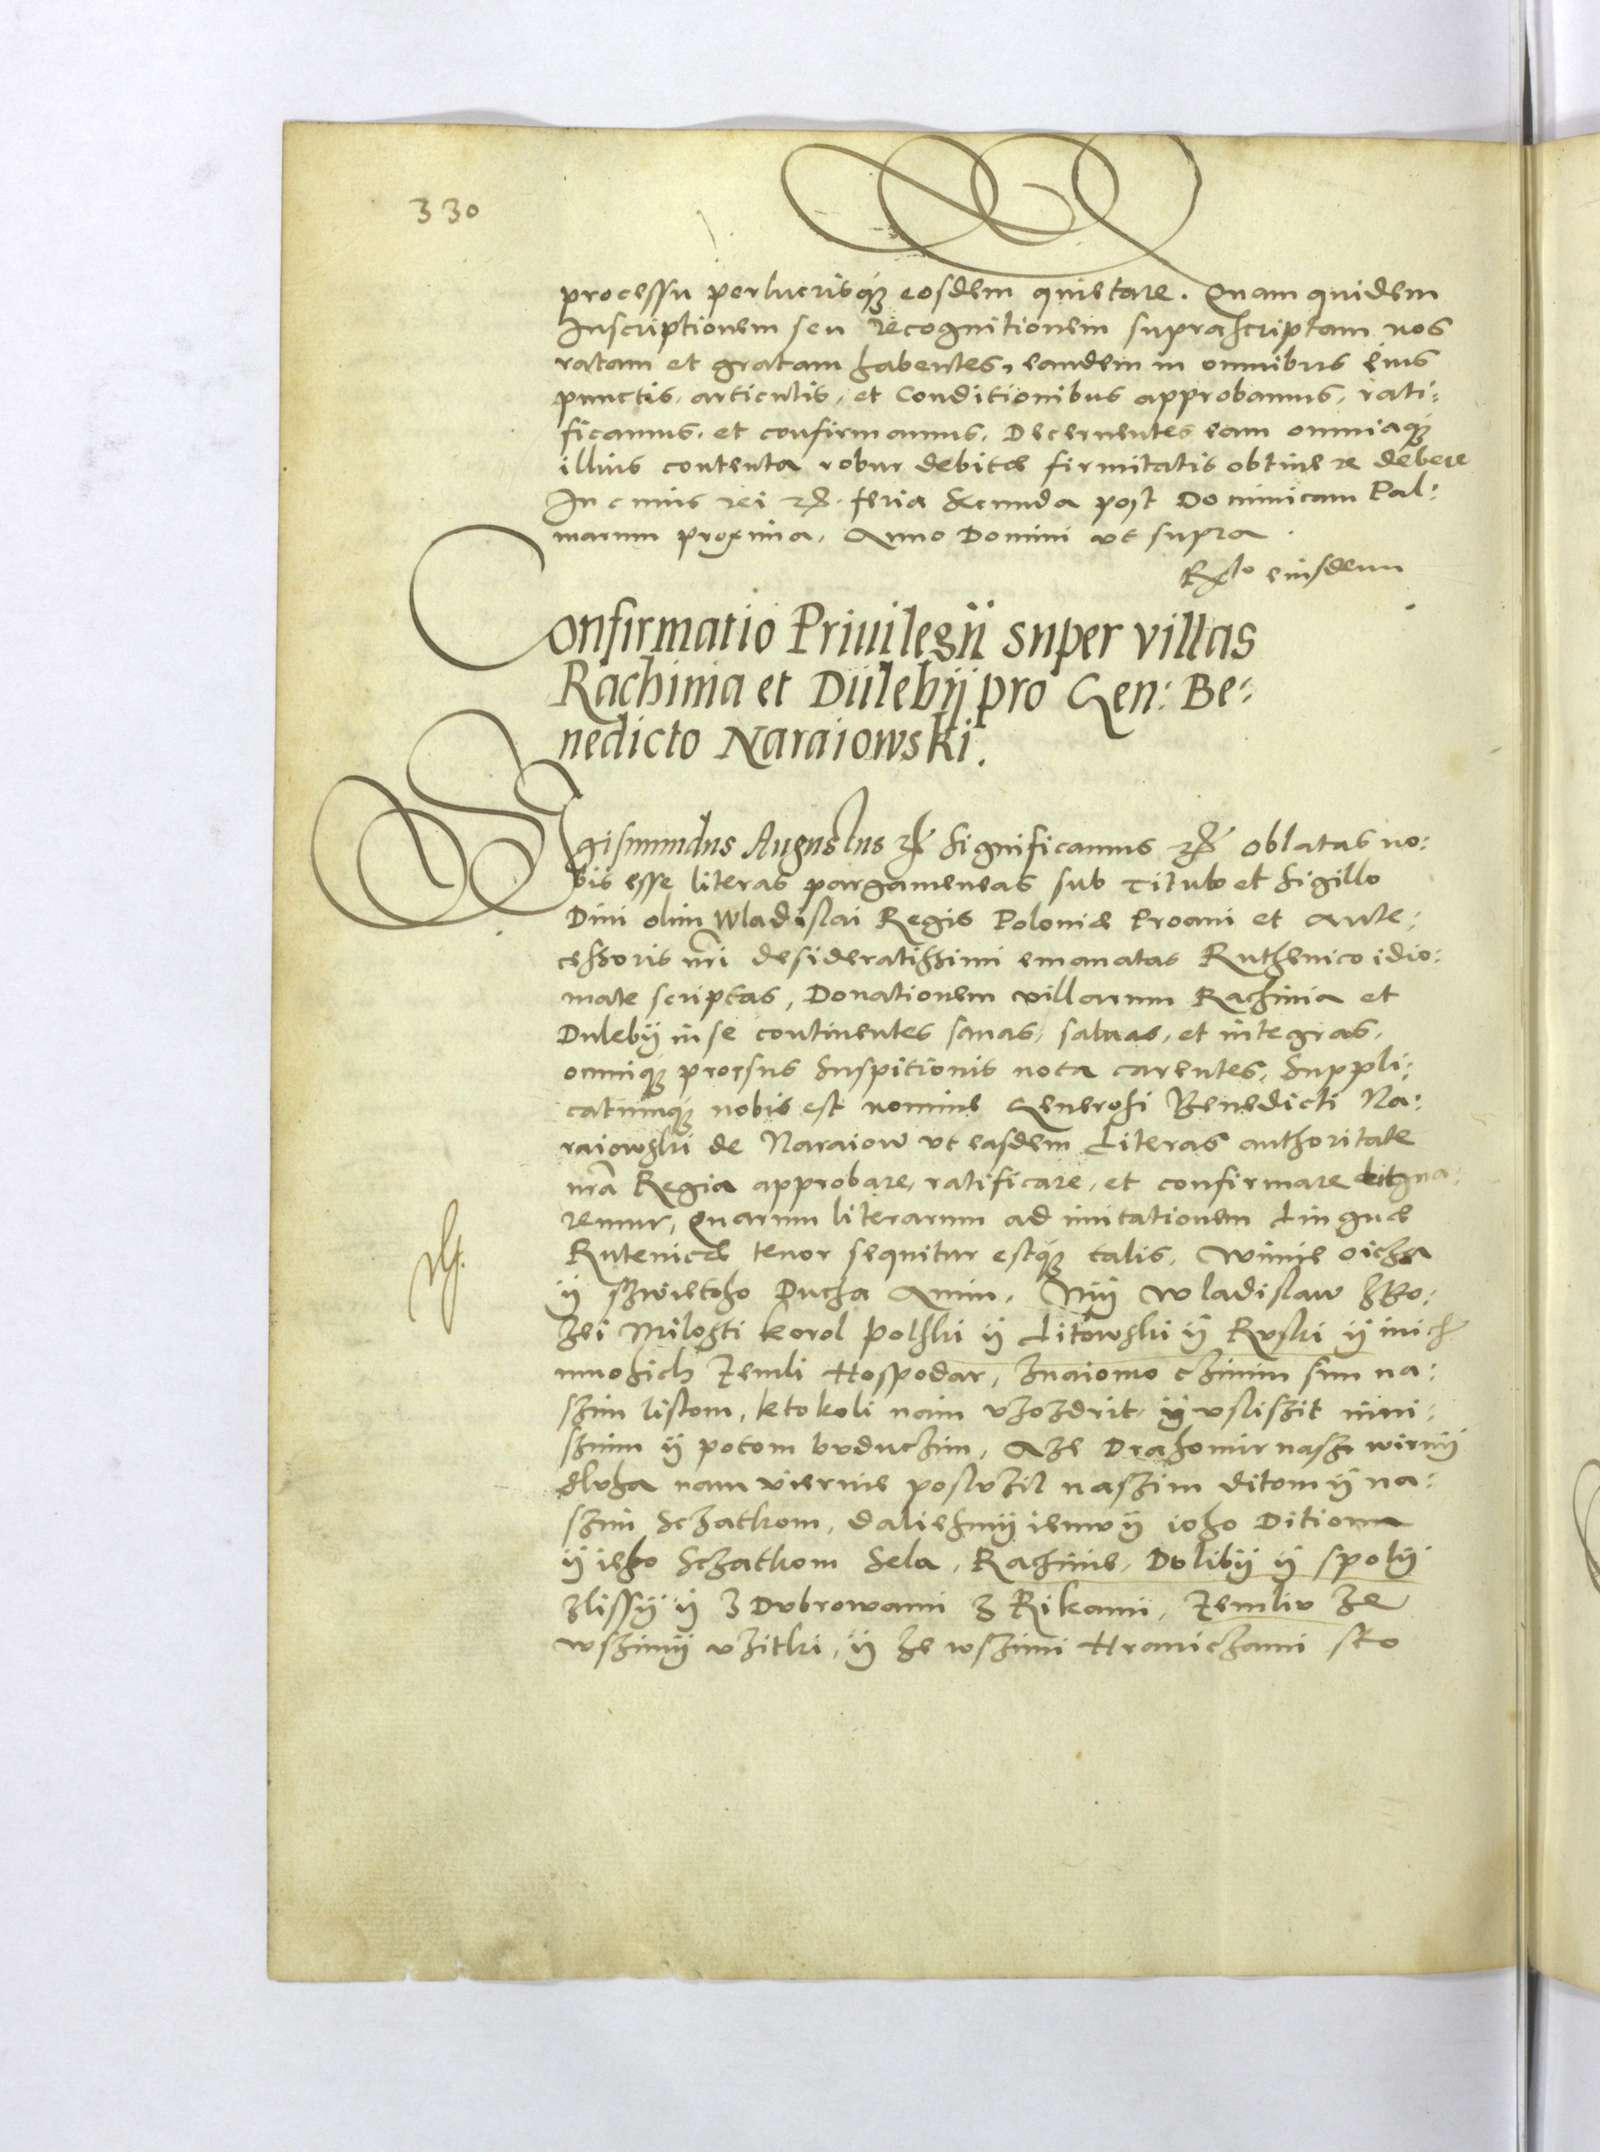 330
processu perlucrisq́ꝫ eosdem quietare. Quam quidem
Inscriptionem seu recognitionem suprascriptam nos
ratam et gratam habentes, eandem in omnibus eius
punctis, articulis, et Conditionibus approbamus, rati:
ficamus, et confirmamus, Decernentes eam omniaq́ꝫ
illius contenta robur debitæ firmitatis obtinere debere
In cuius rei feria secunda post Dominicam Pal:
marum proxima, Anno Domini ut supra.
eiusdem
Confirmatio Priuilegii super villas
Rachinia et Dulebÿ pro Gen: Be:
nedicto Naraiowski.
Sigismundus Augustus Significamus oblatas no:
bis esse literas pargameneas sub Titulo et sigillo
Diui olim Wladislai Regis Poloniæ Proaui et Ante:
cessoris nri desideratissimi emanatas Ruthenico idio:
mate scriptas, Donationem villarum Rachinia et
Dulebÿ in se continentes sanas, saluas, et integras,
omniq́ꝫ prorsus suspitionis nota carentes, suppli:
catumq́ꝫ nobis est nomine Generosi Benedicti Na:
raiowski de Naraiow ut easdem Literas authoritate
nra Regia approbare, ratificare, et confirmare digna:
remur, Quarum literarum ad imitationem Linguæ
Rutenicæ tenor sequitur estq́ꝫ talis, Wimie oicza
ÿ szwietoho Ducha Amin, Mÿ Wladislaw
zei Milosti korol polski ÿ Litowski ÿ Ruski ÿ inich
mnohich zemli Hospodar, znaiomo czinim sim na:
szim listom, kto koli nain vzozdrit, ÿ vsliszit nini:
sznim ÿ potom buduczim, Aze Drahomir nasz wirnÿ
sluha nam viernie posluzil naszim ditom ÿ na:
szim sczatkom, daliesmÿ iemu ÿ ioho Ditiom
ÿ ieho sczatkom sela, Rachinie, Dolibÿ ÿ spolÿ
zlissÿ ÿ z Dubrowami z Rikami, zemliu ze
wszimÿ uzitki, ÿ ze wszimi Hraniczami sto